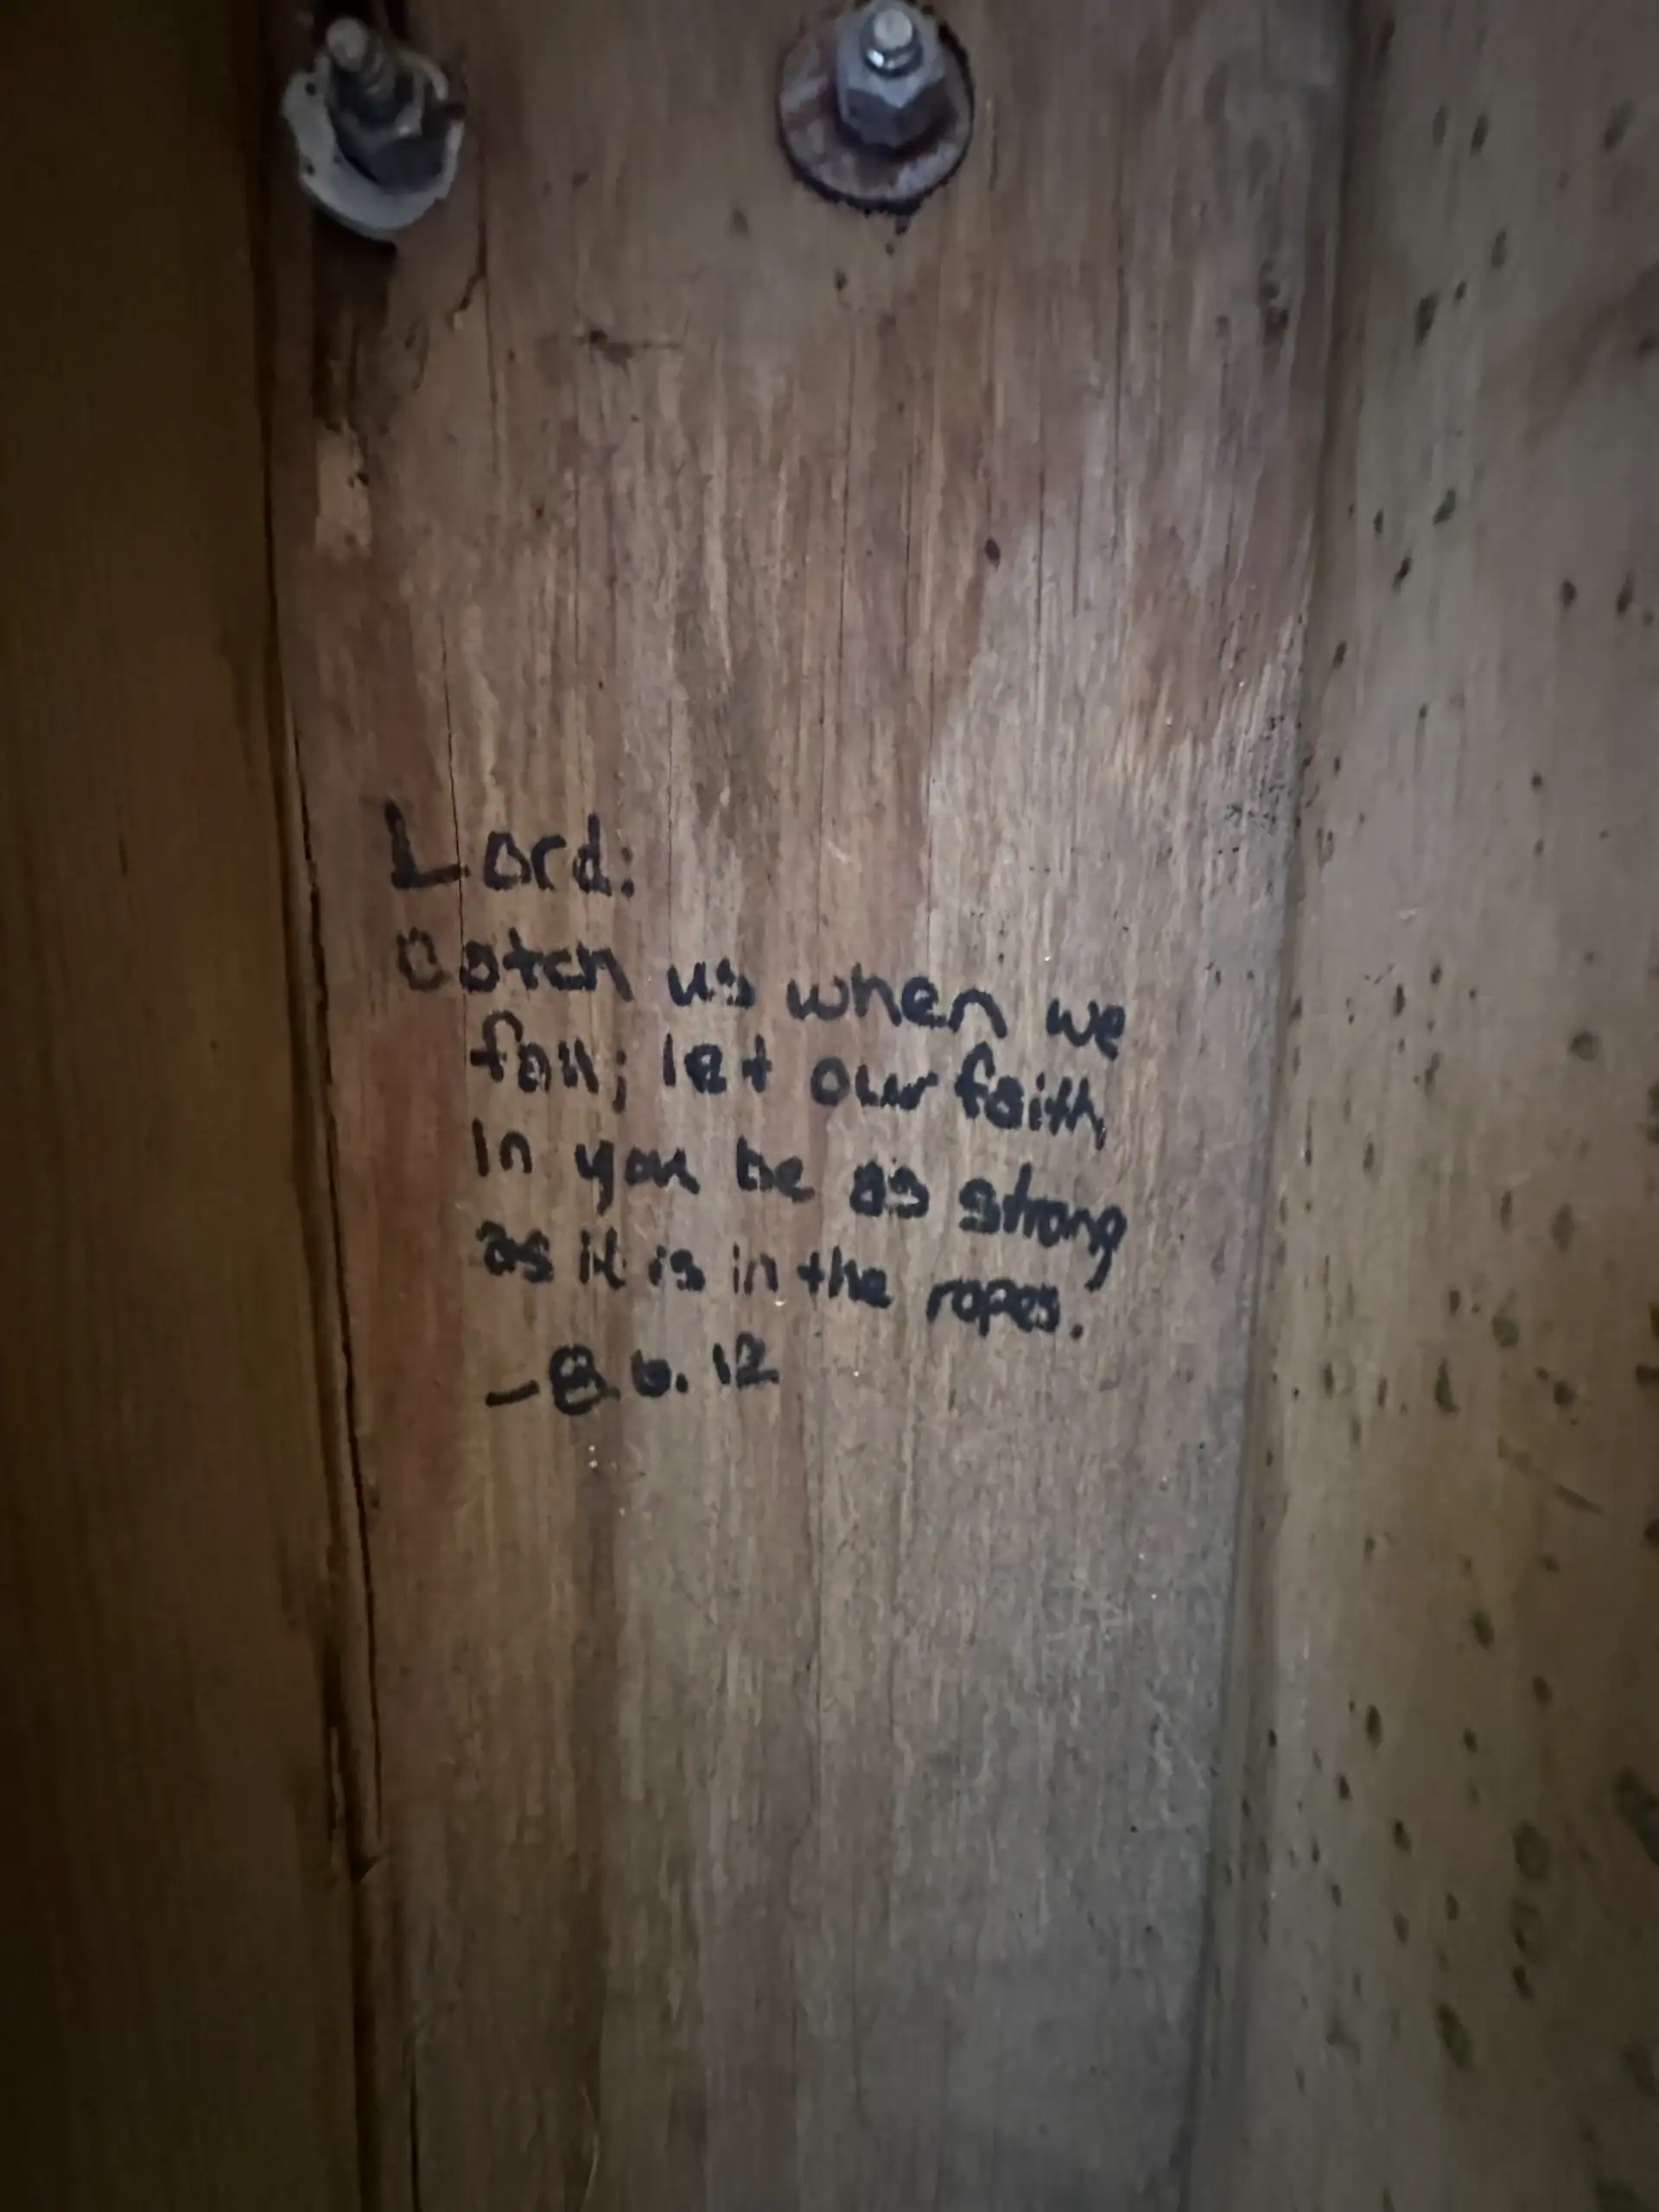 Lord:
Catch us when we
fall; let our faith
in you be as strong
as it is in the ropes.